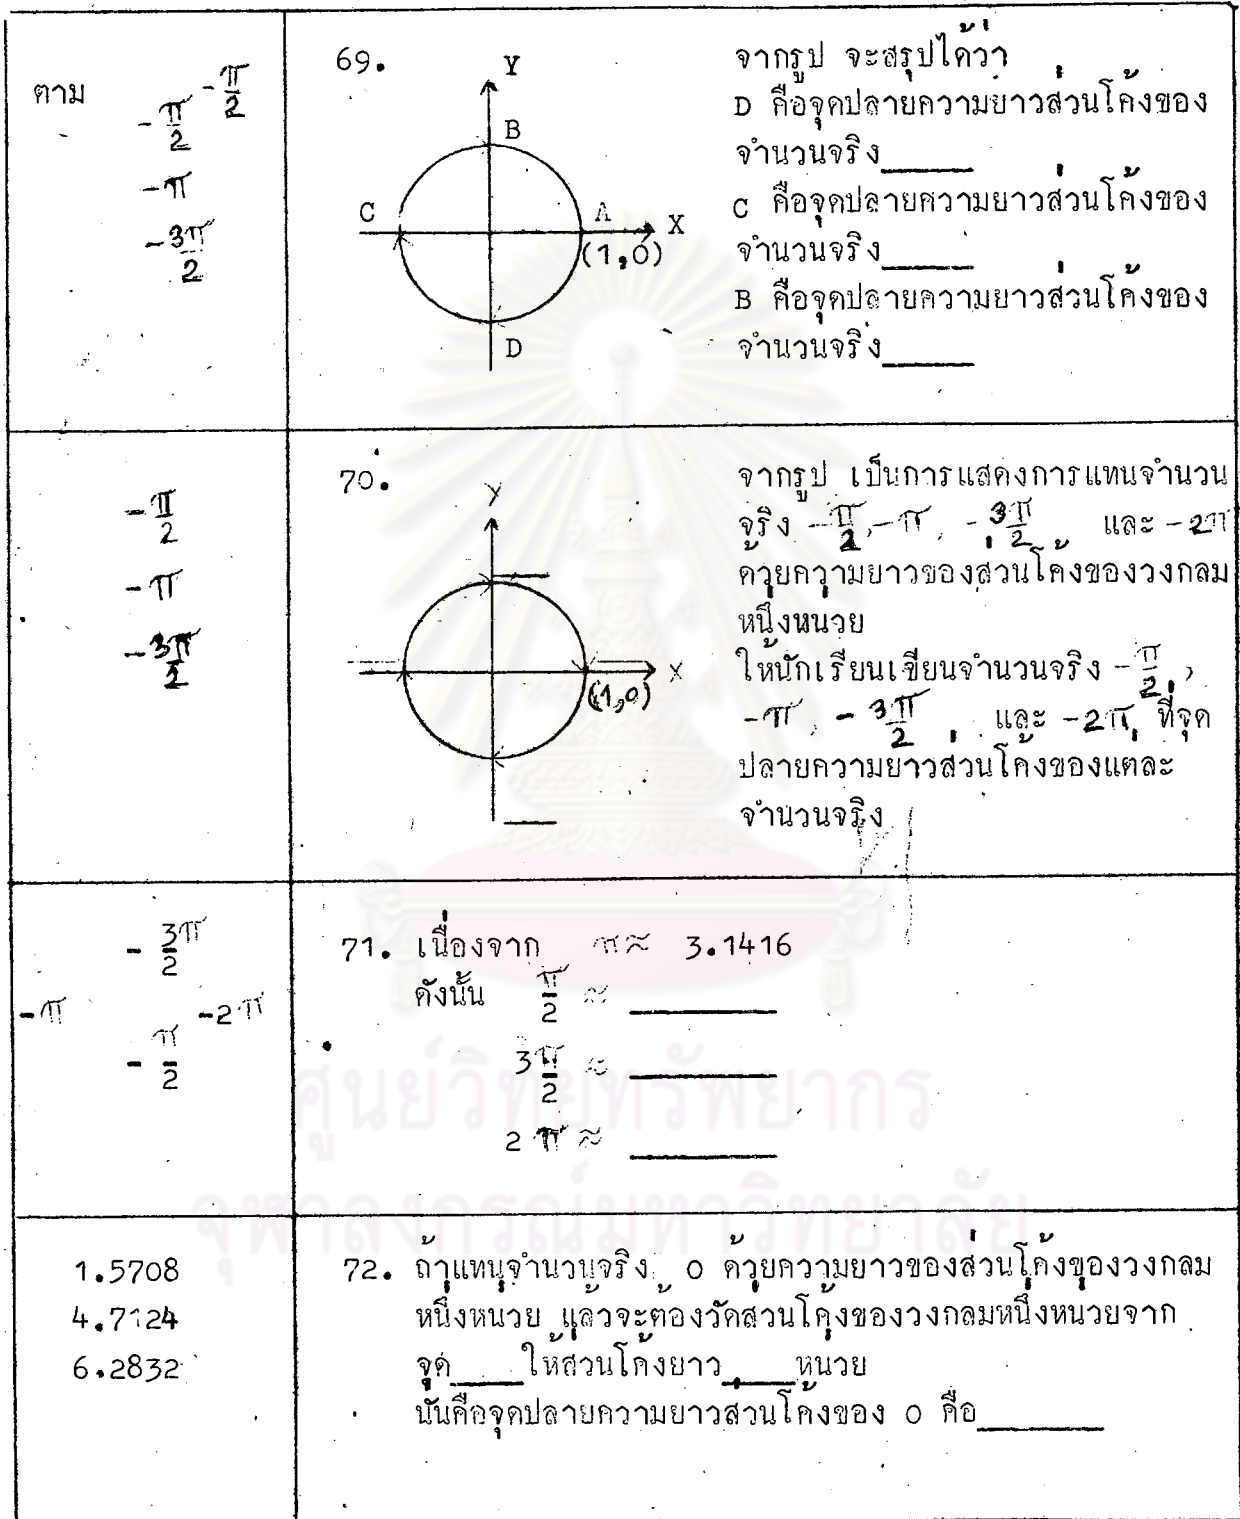 ตาม -π/2
-π/2
-π
-3π/2
69.
Y
B
C
A
X
(1,0)
D
จากรูป จะสรุปได้ว่า
D คือจุดปลายความยาวส่วนโค้งของ
จำนวนจริง_____
C คือจุดปลายความยาวส่วนโค้งของ
จำนวนจริง_____
B คือจุดปลายความยาวส่วนโค้งของ
จำนวนจริง_____
-π/2
-π
-3π/2
70.
Y
X
(1,0)
จากรูป เป็นการแสดงการแทนจำนวน
จริง -π/2, -π, -3π/2 และ -2π
ด้วยความยาวของส่วนโค้งของวงกลม
หนึ่งหน่วย
ให้นักเรียนเขียนจำนวนจริง -π/2,
-π, -3π/2, และ -2π, ที่จุด
ปลายความยาวส่วนโค้งของแต่ละ
จำนวนจริง
-3/2π
-π -2π
-π/2
71. เนื่องจาก π ≈ 3.1416
ดังนั้น π/2 ≈ ________
3π/2 ≈ ________
2π ≈ ________
1.5708
4.7124
6.2832
72. ถ้าแทนจำนวนจริง 0 ด้วยความยาวของส่วนโค้งของวงกลม
หนึ่งหน่วย แล้วจะต้องวัดส่วนโค้งของวงกลมหนึ่งหน่วยจาก
จุด____ให้ส่วนโค้งยาว____หน่วย
นั่นคือจุดปลายความยาวส่วนโค้งของ 0 คือ_______
ศูนย์วิทยทรัพยากร
จุฬาลงกรณ์มหาวิทยาลัย